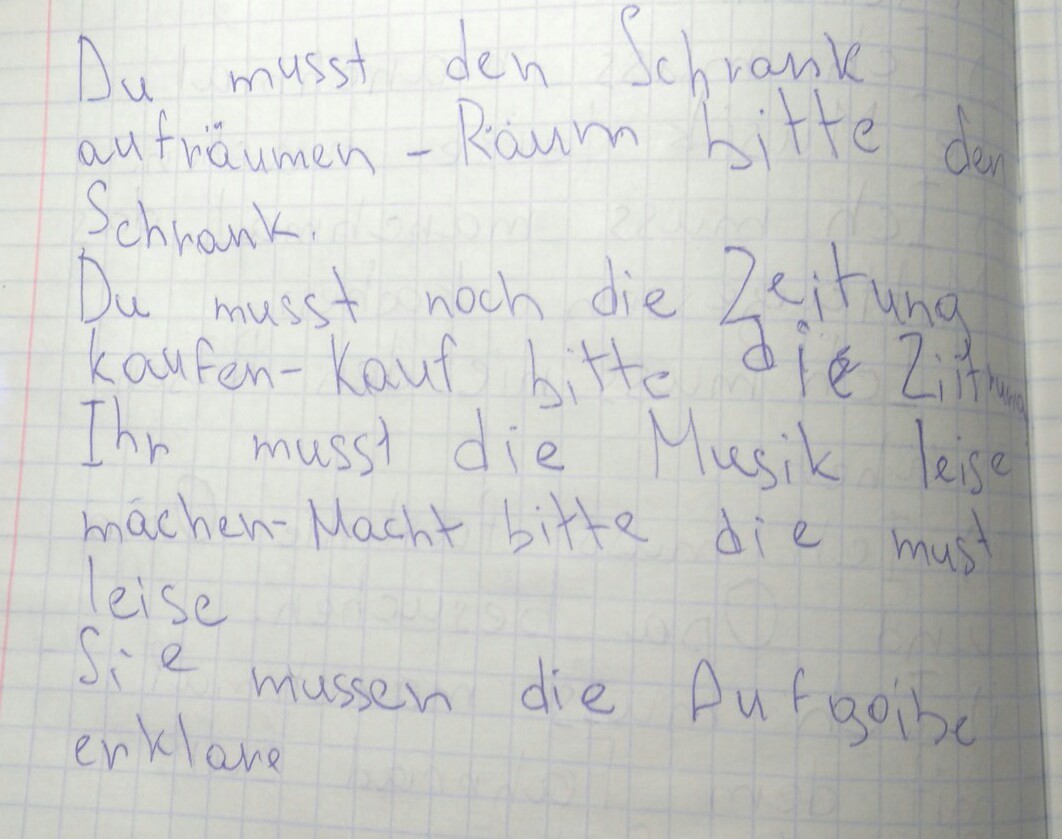 Du musst den Schrank
aufräumen - Räum bitte den
Schrank.
Du musst noch die Zeitung
kaufen - Kauf bitte die Ziitung
Ihr musst die Musik leise
machen - Macht bitte die must
leise
Sie mussen die Aufgoibe
erklare